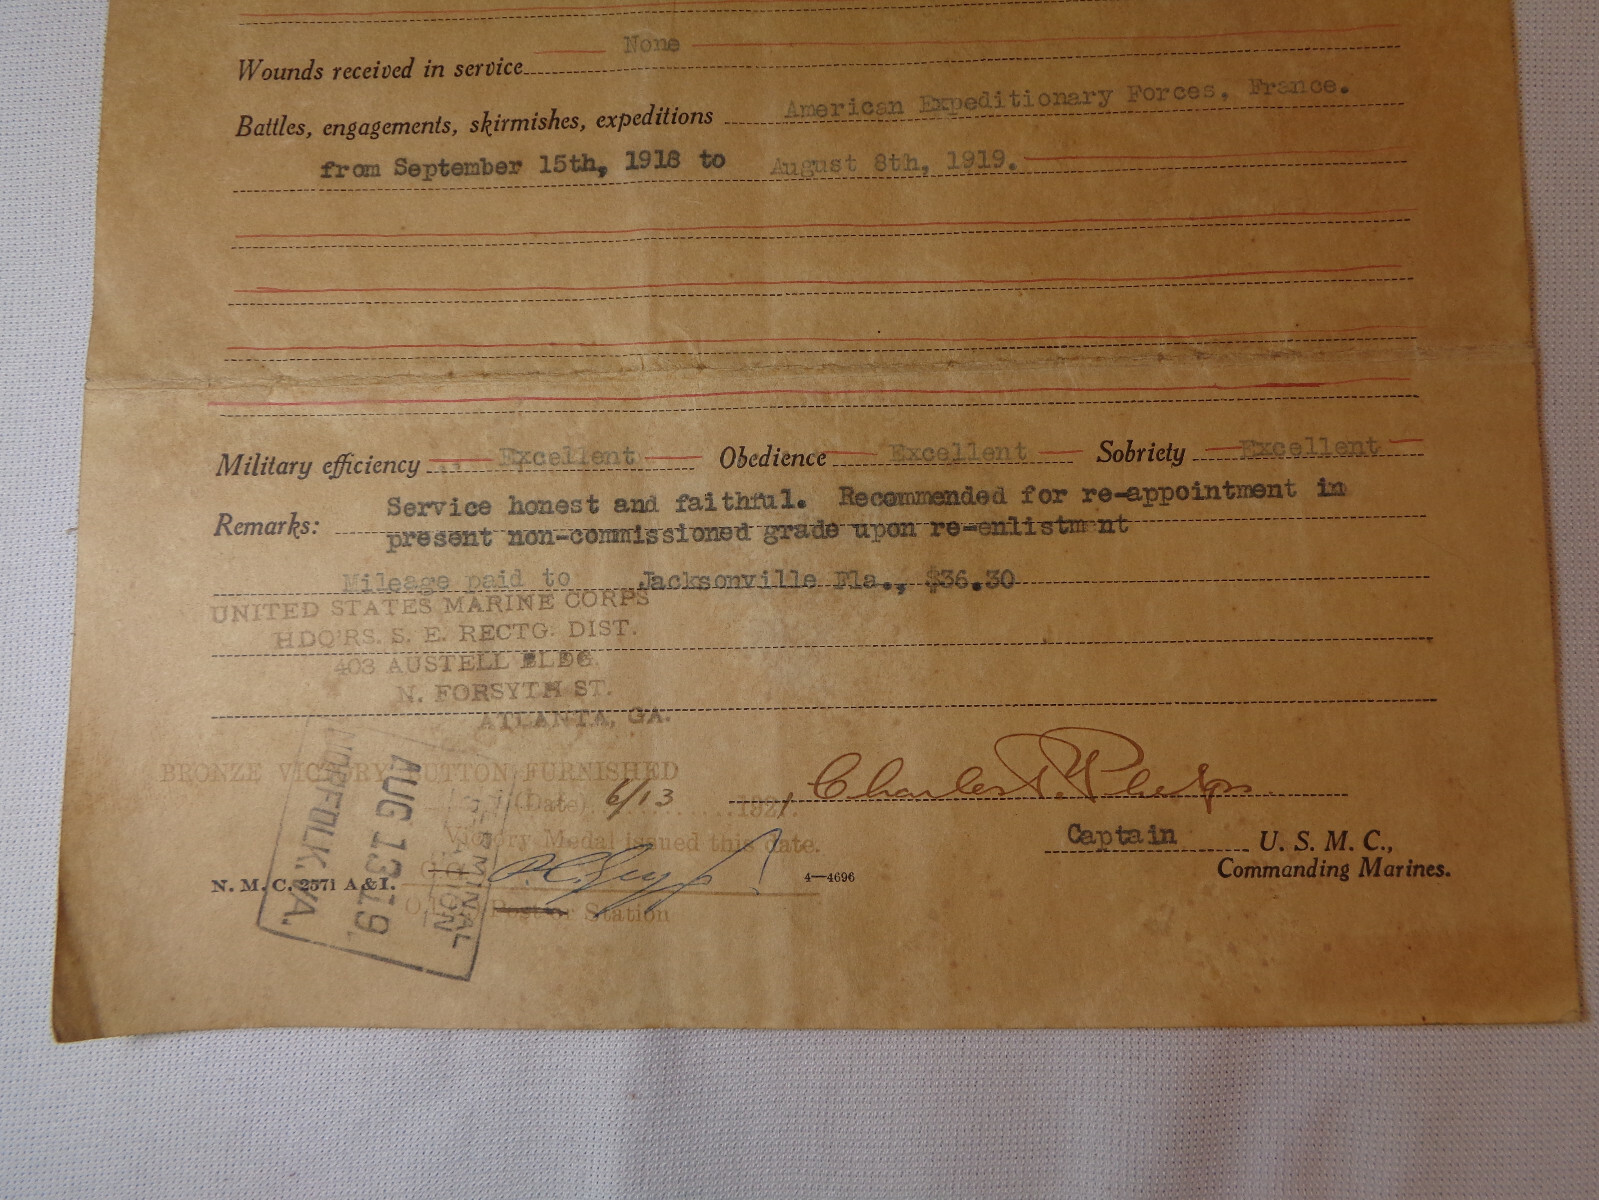 Wounds received in service None
Battles, engagements, skirmishes, expeditions American Expeditionary Forces, France.
from September 15th, 1918 to August 8th, 1919.
Military efficiency Excellent Obedience Excellent Sobriety Excellent
Remarks: Service honest and faithful. Recommended for re-appointment in
present non-commissioned grade upon re-enlistment
Mileage paid to Jacksonville Fla., $36.30
UNITED STATES MARINE CORPS
HDQ'RS. S. E. RECTG. DIST.
403 AUSTELL BLDG.
N. FORSYTH ST.
ATLANTA, GA.
BRONZE VICTORY BUTTON FURNISHED
(Date) 6/13 1921.
Victory Medal issued this date.
Charles Phelps
Captain U. S. M. C.,
Commanding Marines.
N. M. C. 2571 A & I.
4—4696
Station
NORFOLK, VA.
AUG 13 19